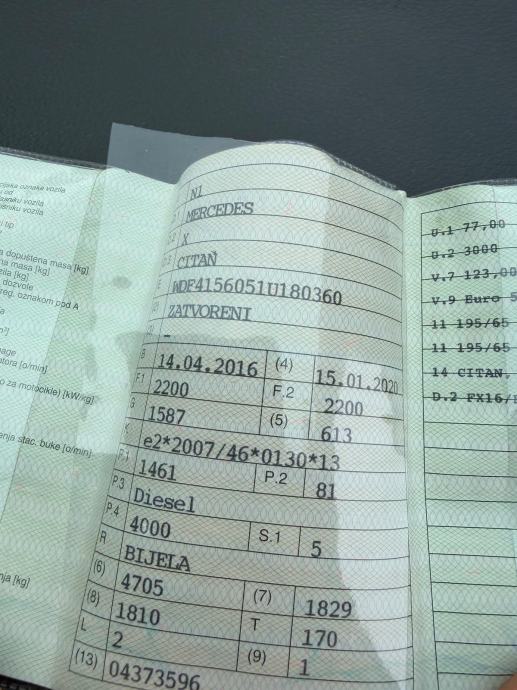 oznaka vozila
vozila
vozila
tip
dopuštena masa [kg]
masa [kg]
[kg]
dozvole
reg. oznakom pod A
[o/min]
za motocikle) [kW/kg]
stac. buke [o/min]
[kg]
N1
MERCEDES
X
CITAN
WDF4156051U180360
ZATVORENI
-
B 14.04.2016 (4) 15.01.2020
F.1 2200 F.2 2200
G 1587 (5) 613
K e2*2007/46*0130*13
P.1 1461 P.2 81
P.3 Diesel
P.4 4000 S.1 5
R BIJELA
(6) 4705 (7) 1829
(8) 1810 T 170
L 2 (9) 1
(13) 04373596
U.1 77,00
U.2 3000
V.7 123,00
V.9 Euro 5
11 195/65
11 195/65
14 CITAN,
D.2 FX16/